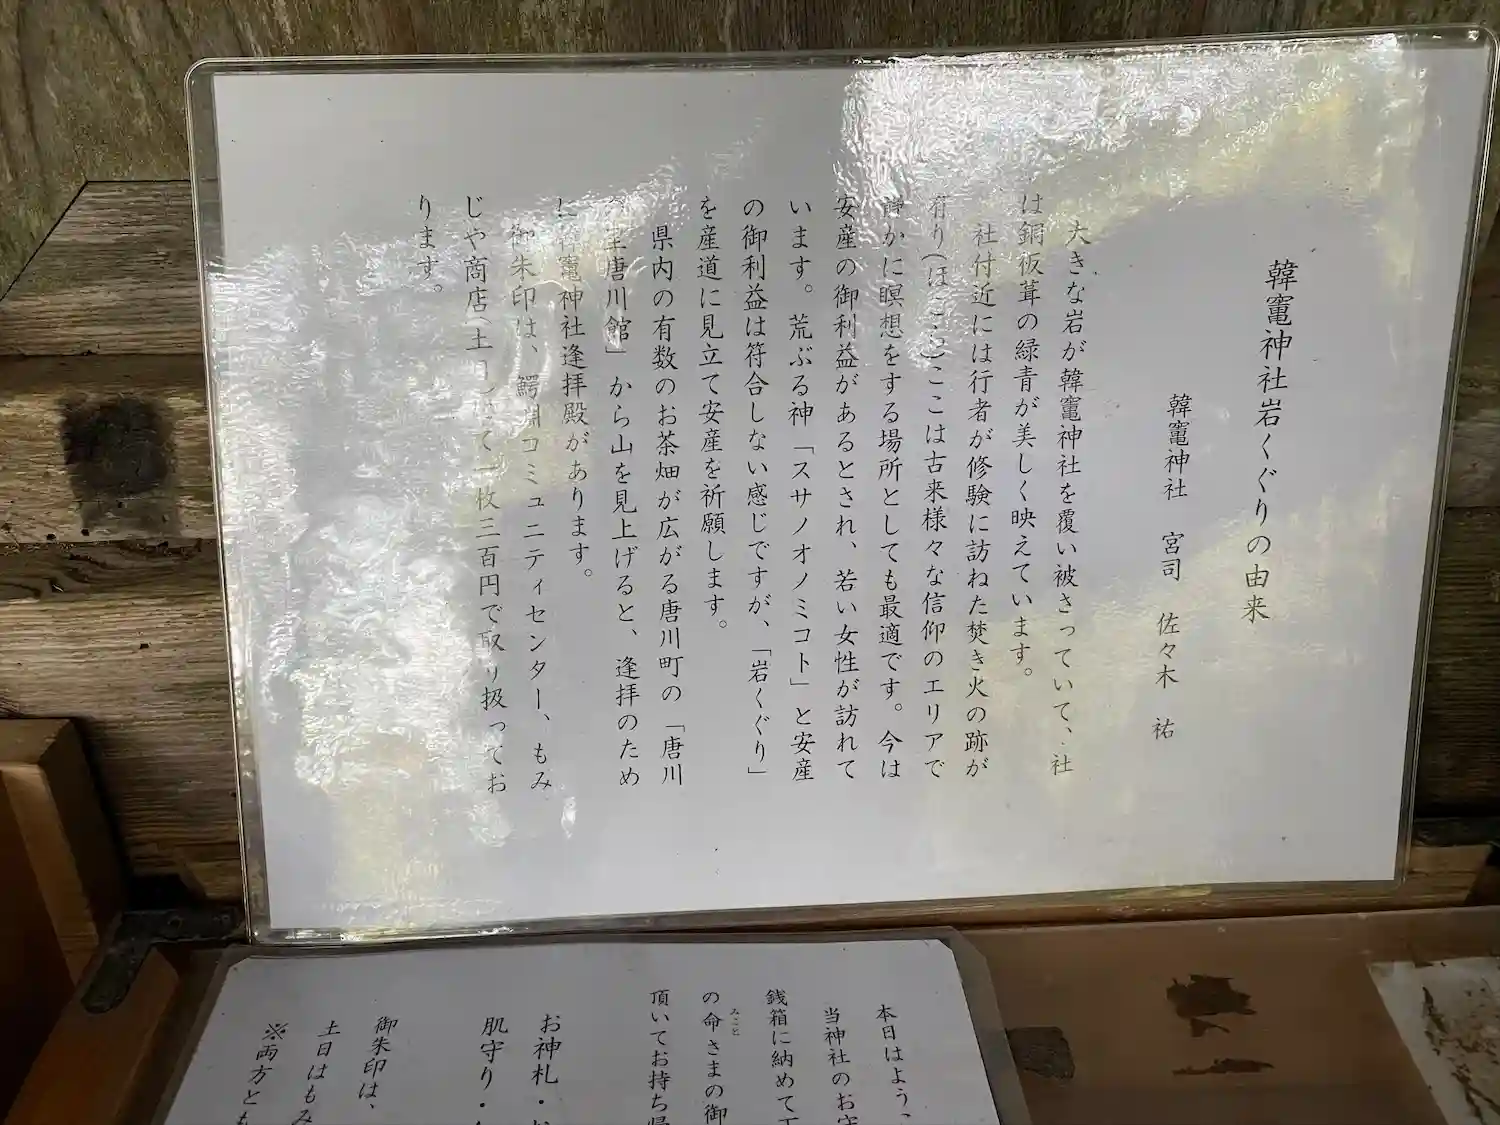 韓竈神社岩くぐりの由来
韓竈神社 宮司 佐々木 祐
大きな岩が韓竈神社を覆い被さっていて、社
は銅板葺の緑青が美しく映えています。
社付近には行者が修験に訪ねた焚き火の跡が
有り(ほこここ)ここは古来様々な信仰のエリアで
静かに瞑想をする場所としても最適です。今は
安産の御利益があるとされ、若い女性が訪れて
います。荒ぶる神「スサノオノミコト」と安産
の御利益は符合しない感じですが、「岩くぐり」
を産道に見立て安産を祈願します。
県内の有数のお茶畑が広がる唐川町の「唐川
里唐川館」から山を見上げると、逢拝のため
に韓竈神社逢拝殿があります。
御朱印は、鰐淵コミュニティセンター、もみ
じや商店(土日 て一枚三百円で取り扱ってお
ります。
本日はよう、
当神社のお守
銭箱に納めて
の命さまの御
みこと
頂いてお持ち帰
お神札・
肌守り・
御朱印は、
土日はもみ
※両方とも